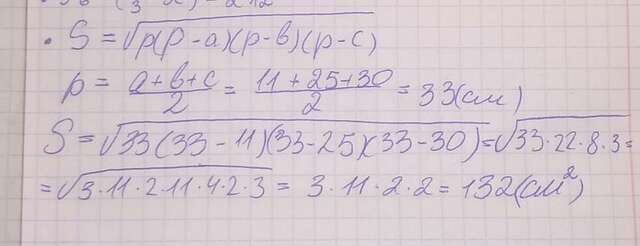 • S = √p(p - a)(p - b)(p - c)
p = a + b + c / 2 = 11 + 25 + 30 / 2 = 33 (см)
S = √33(33 - 11)(33 - 25)(33 - 30) = √33·22·8·3 =
= √3·11·2·11·4·2·3 = 3·11·2·2 = 132 (см²)